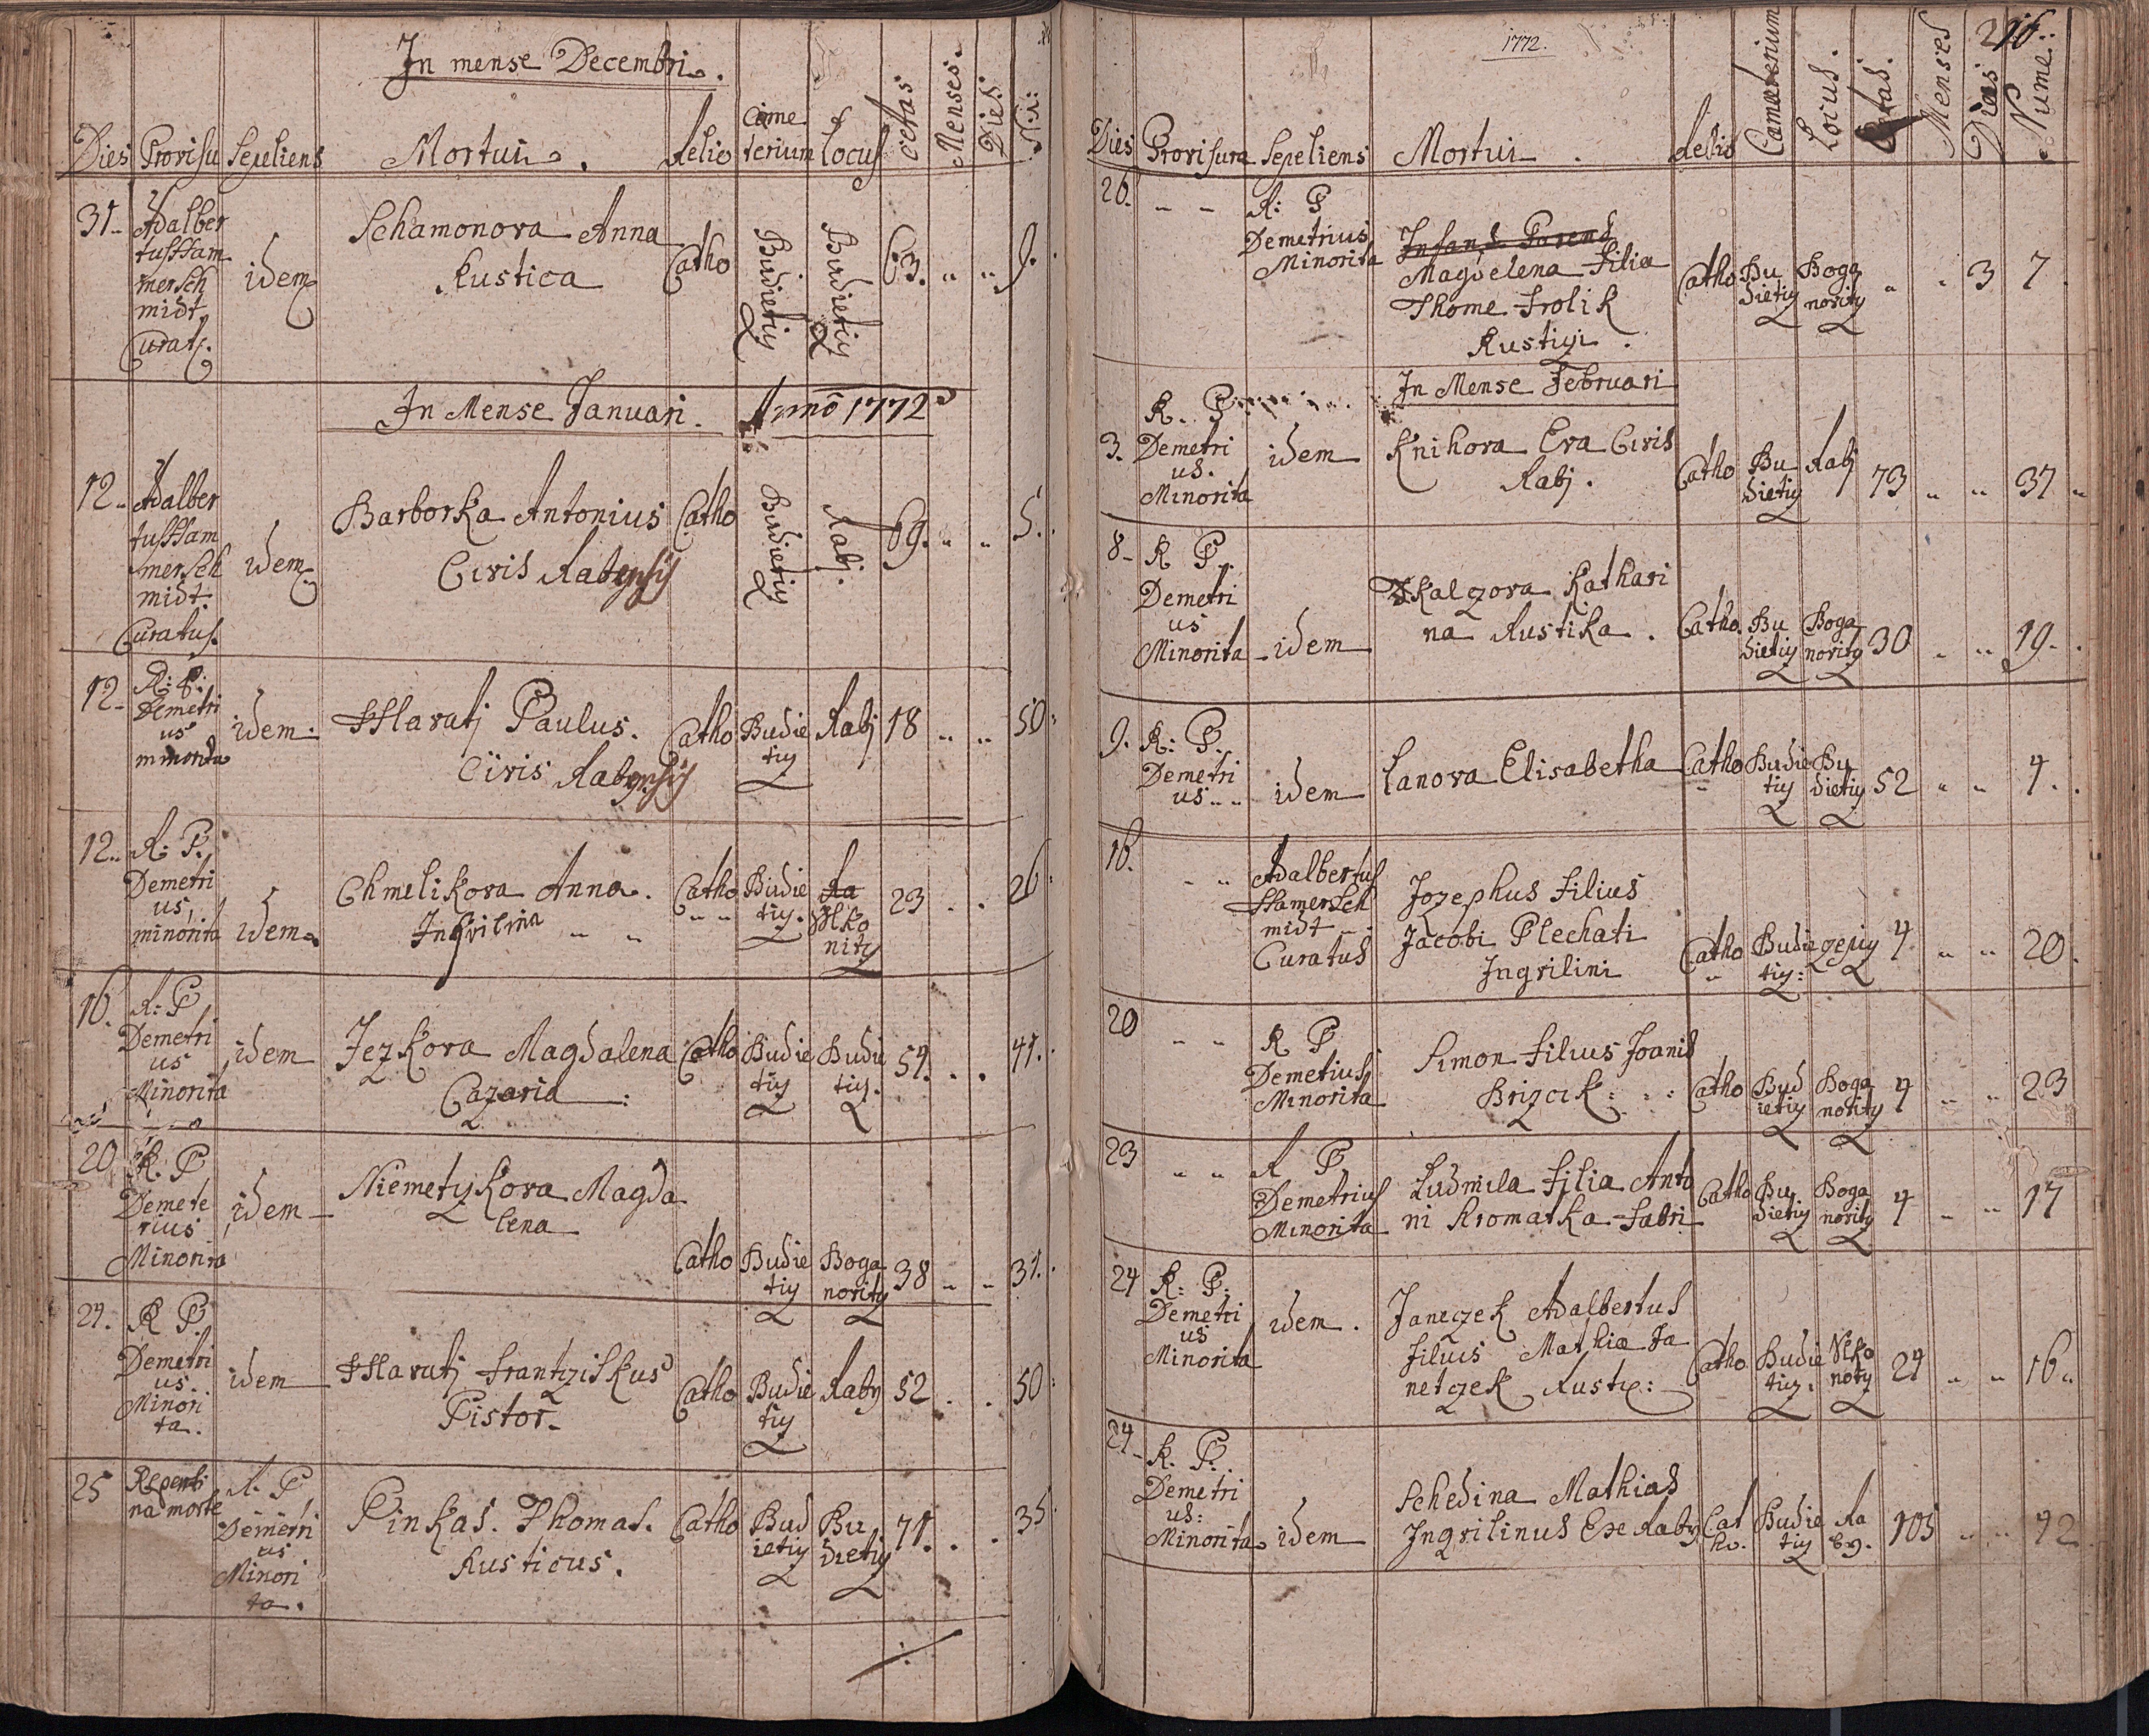 In mense Decembri.
Dies Provisu Sepeliens Mortui. Relio Cime terium Locus Oetas Menses. Dies N:
31. Adalber
tus Ham
mersch
midt
Curat. idem
Schamonova Anna
Rustica Catho Budietiy Budietiy 63. " " 9.
In Mense Januari. Anno 1772
12. Adalber
tus Ham
mersch
midt
Curatus. idem
Barborka Antonius
Civis Rabensis Catho Budietiy Rabj. 69. " " 5.
12. R: P:
Demetri
us
minorita idem.
Hawatj Paulus.
Civis Rabensis Catho Budie
tiy Rabj 18 " " 50
12. R: P.
Demetri
us,
minorita idem
Chmelikova Anna.
Inqvilina " " Catho
" " Budie
tiy. Ra
Wlko
nity 23 . . 26
16. R: P
Demetri
us
Minorita idem
Jezkova Magdalena
Cazaria : Catho Budie
tiy Budie
tiy. 54. . . 41.
20 R. P
Demete
rius
Minorita idem
Niemetzkova Magda
lena
Catho Budie
tiy Boga
nority 38 " " 31.
24. R P.
Demetri
us.
Minori
ta. idem
Hawatj Frantziskus
Pistor. Catho Budie
tiy Raby 52 . . 50
25 Repenti
na morte R. P
Demetri
us
Minori
ta.
Pinkas. Thomas.
Rusticus. Catho Bud
ietiy Bu
dietiy 71. . . 35
1772.
216
Dies Provisura Sepeliens Mortui . Relio Locus. Etas. Menses Dias Nume:
26. " " R: P
Demetrius
Minorita
Infans Parens
Magdelena Filia
Thome Frolik
Rustiyi . Catho Bu
dietiy Boga
nority " " 3 7
In Mense Februari
3. R. P
Demetri
us.
Minorita idem
Knihova Eva Civis
Rabj. Catho Bu
dietiy Rabj 73 " " 37 "
8 R P.
Demetri
us
Minorita idem
Skalzova Kathari
na Rustika . Catho. Bu
dietiy Boga
nority 30 " " 19.
9. R: P.
Demetri
us " " idem
Lanova Elisabetha Catho
" Budie
tiy Bu
dietiy 52 " " 4.
16. " " Adalbertus
Hamersch
midt
Curatus
Jozephus Filius
Jacobi Plechati
Ingvilini Catho
" Budie
tiy: 4 " " 20.
20 " " R P
Demetius
Minorita
Simon Filius Joanis
Brizcik : : : Catho Bud
ietiy Boga
nority 4 " " 23
23 " " R P
Demetrius
Minorita
Ludmila Filia Anto
ni Kromatka Fabri Catho Bu
dietiy Boga
nority 4 " " 17
24 R: P:
Demetri
us
Minorita idem .
Janeczek Adalbertus
Filius Mathia Ja
netczek Rusty: Catho Budie
tiy. Vlko
noty 24 " " 16 "
24 R. P.
Demetri
us:
Minorita idem
Schedina Mathias
Ingvilinus Exe Raby Cat
ho. Budie
tiy Ra
by. 105 " " 42